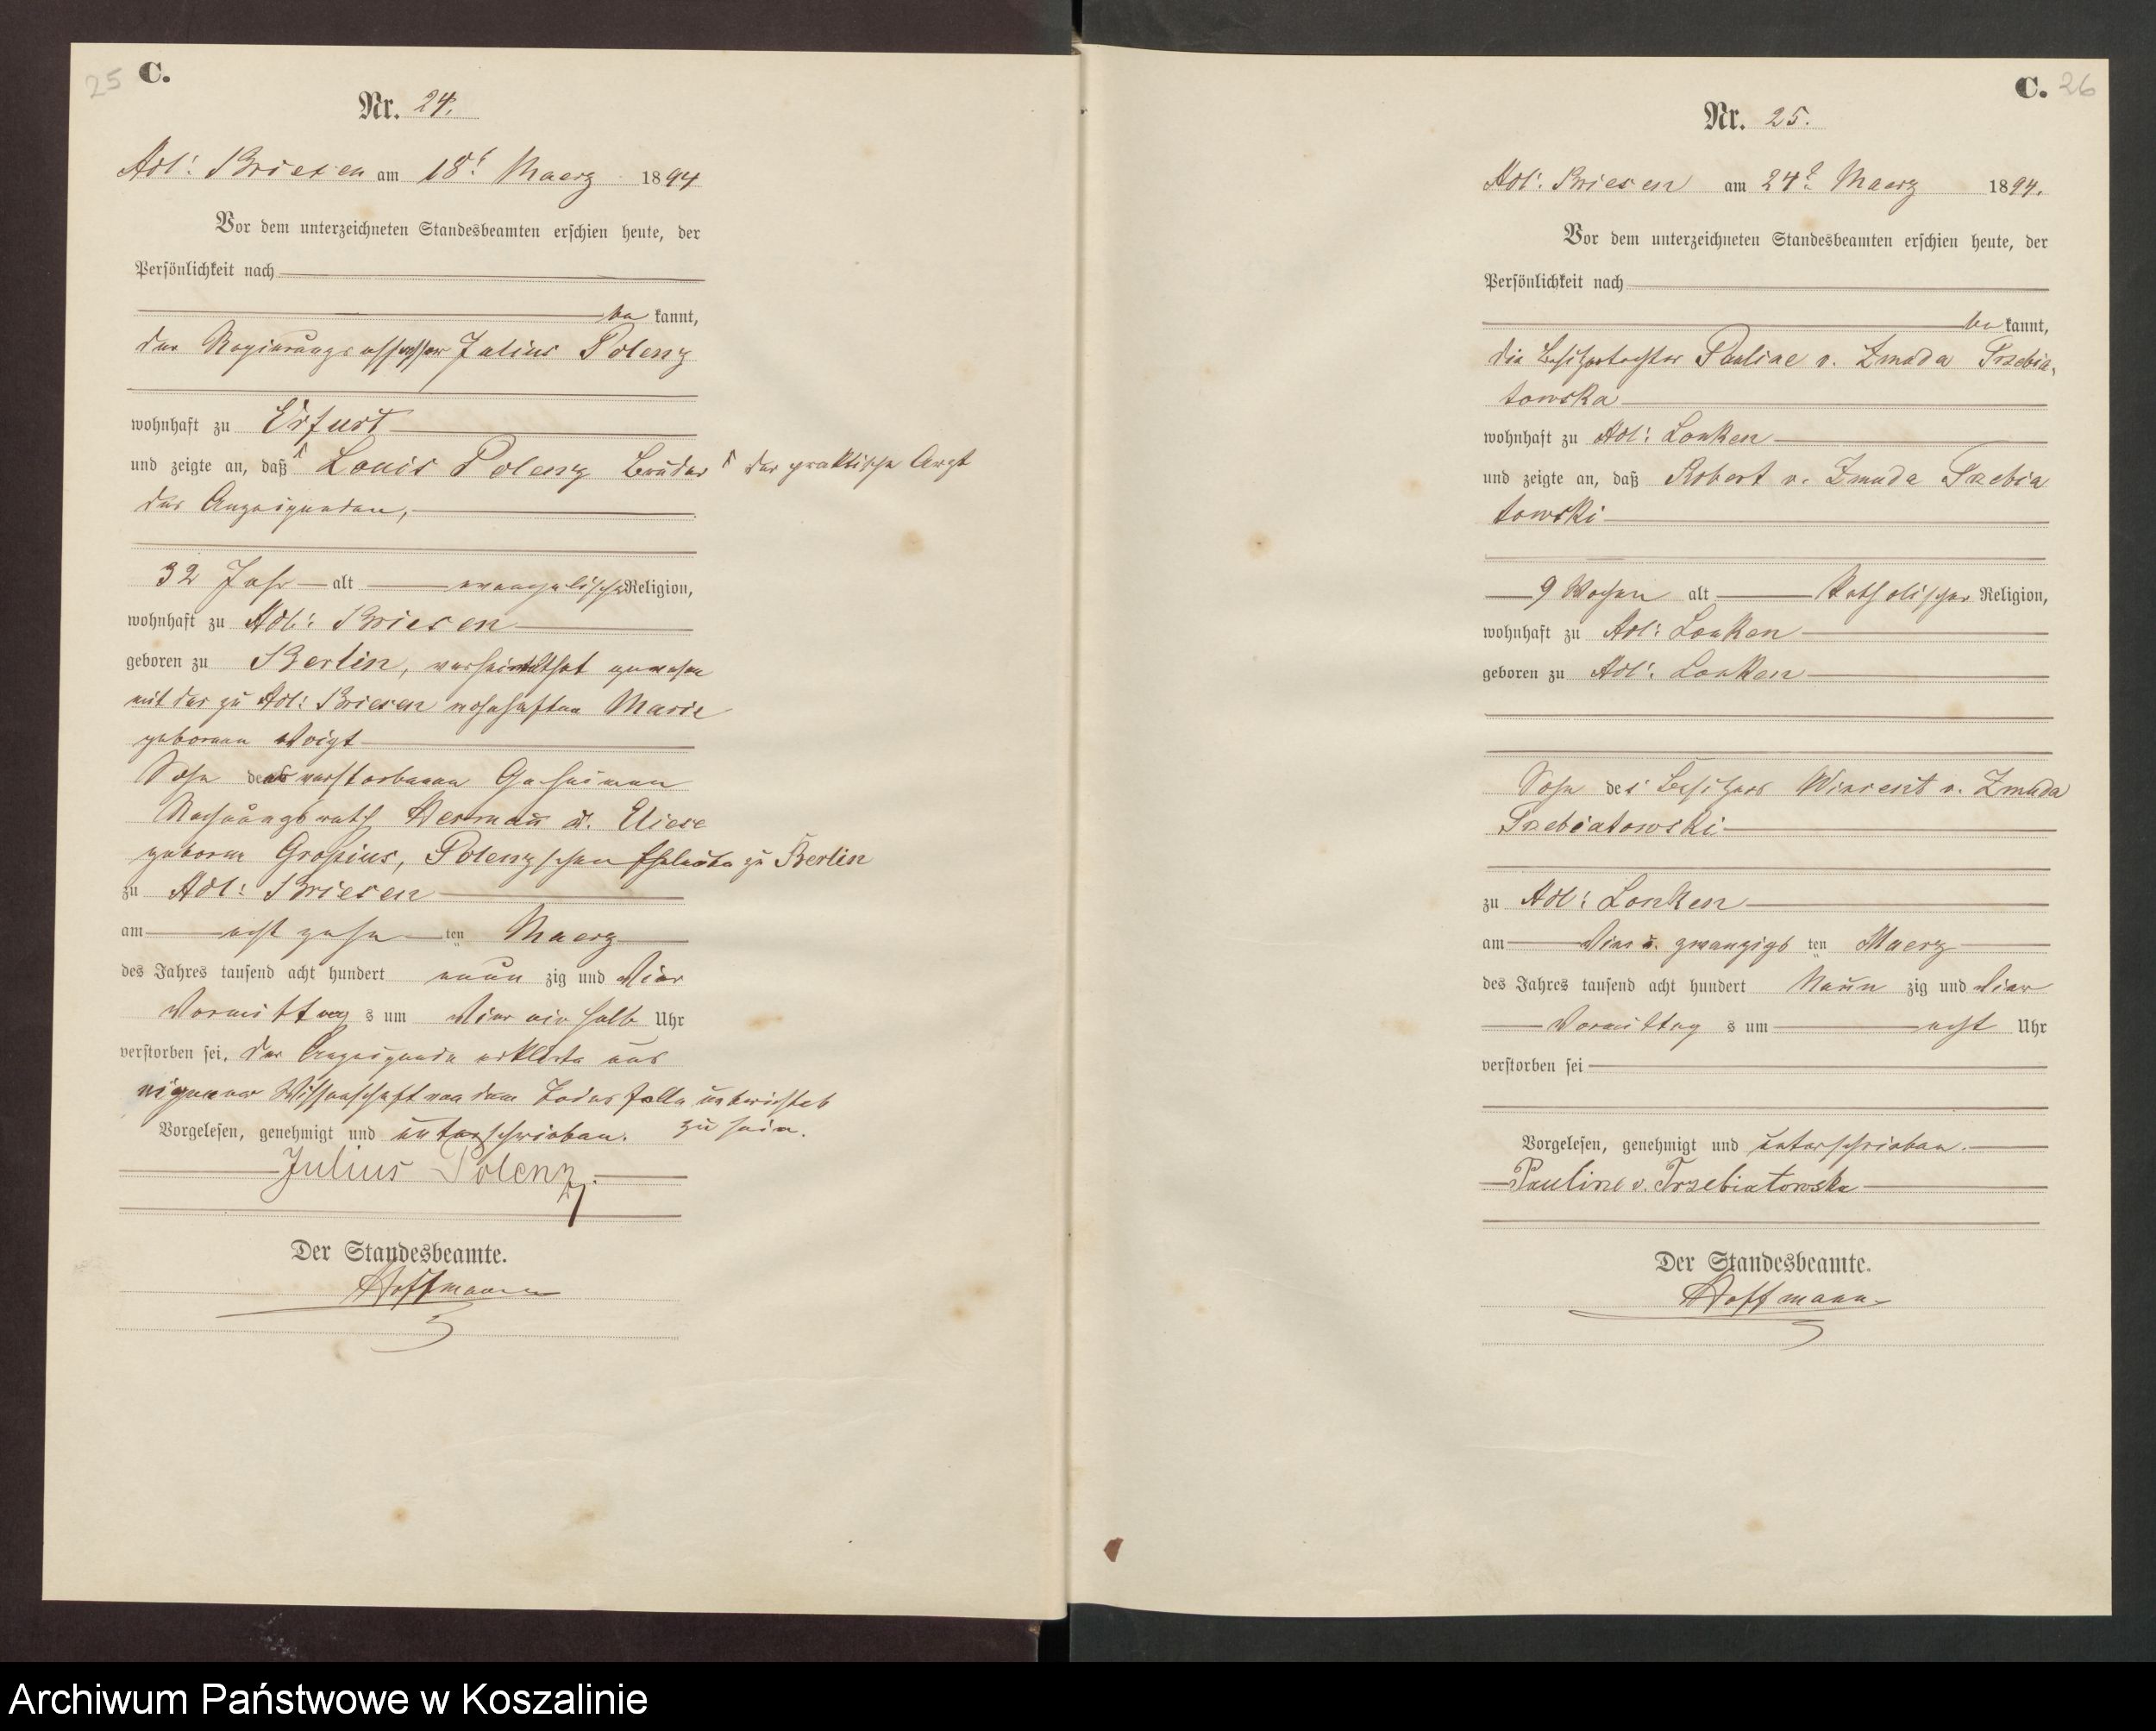 25 C.
Nr. 24.
Adl: Briesen am 18t Maerz 1894
Vor dem unterzeichneten Standesbeamten erschien heute, der
Persönlichkeit nach
be kannt,
der Regierungsassessor Julius Polenz
wohnhaft zu Erfurt
und zeigte an, daß Louis Polenz Bruder der praktische Arzt
des Anzeigenden,
32 Jahr alt evangelischer Religion,
wohnhaft zu Adl: Briesen
geboren zu Berlin, verheirathet gewesen
mit der zu Adl: Briesen wohnhaften Marie
geborenen Voigt
Sohn des verstorbenen Geheimen
Rechnungsrath Herman u. Eliese
geborne Gropius, Polenzschen Eheleute zu Berlin
zu Adl: Briesen
am acht zehn ten Maerz
des Jahres tausend acht hundert neun zig und vier
Vormittag s um vier ein halb Uhr
verstorben sei. Der Anzeigende erklärte aus
eigener Wissenschaft von dem Todesfalle unterrichtet
zu sein.
Vorgelesen, genehmigt und unterschrieben.
Julius Polenz.
Der Standesbeamte.
Hoffmann
C. 26
Nr. 25.
Adl: Briesen am 24t Maerz 1894.
Vor dem unterzeichneten Standesbeamten erschien heute, der
Persönlichkeit nach
be kannt,
die Besitzertochter Pauline v. Zmuda Trzebia-
towska
wohnhaft zu Adl: Lonken
und zeigte an, daß Robert v. Zmuda Trzebia
towski
9 Wochen alt katholischer Religion,
wohnhaft zu Adl: Lonken
geboren zu Adl: Lonken
Sohn des Besitzers Vincent v. Zmuda
Trzebiatowski
zu Adl: Lonken
am vier u. zwanzigs ten Maerz
des Jahres tausend acht hundert Neun zig und vier
Vormittag s um acht Uhr
verstorben sei
Vorgelesen, genehmigt und unterschrieben.
Pauline v. Trzebiatowska
Der Standesbeamte.
Hoffmann
Archiwum Państwowe w Koszalinie